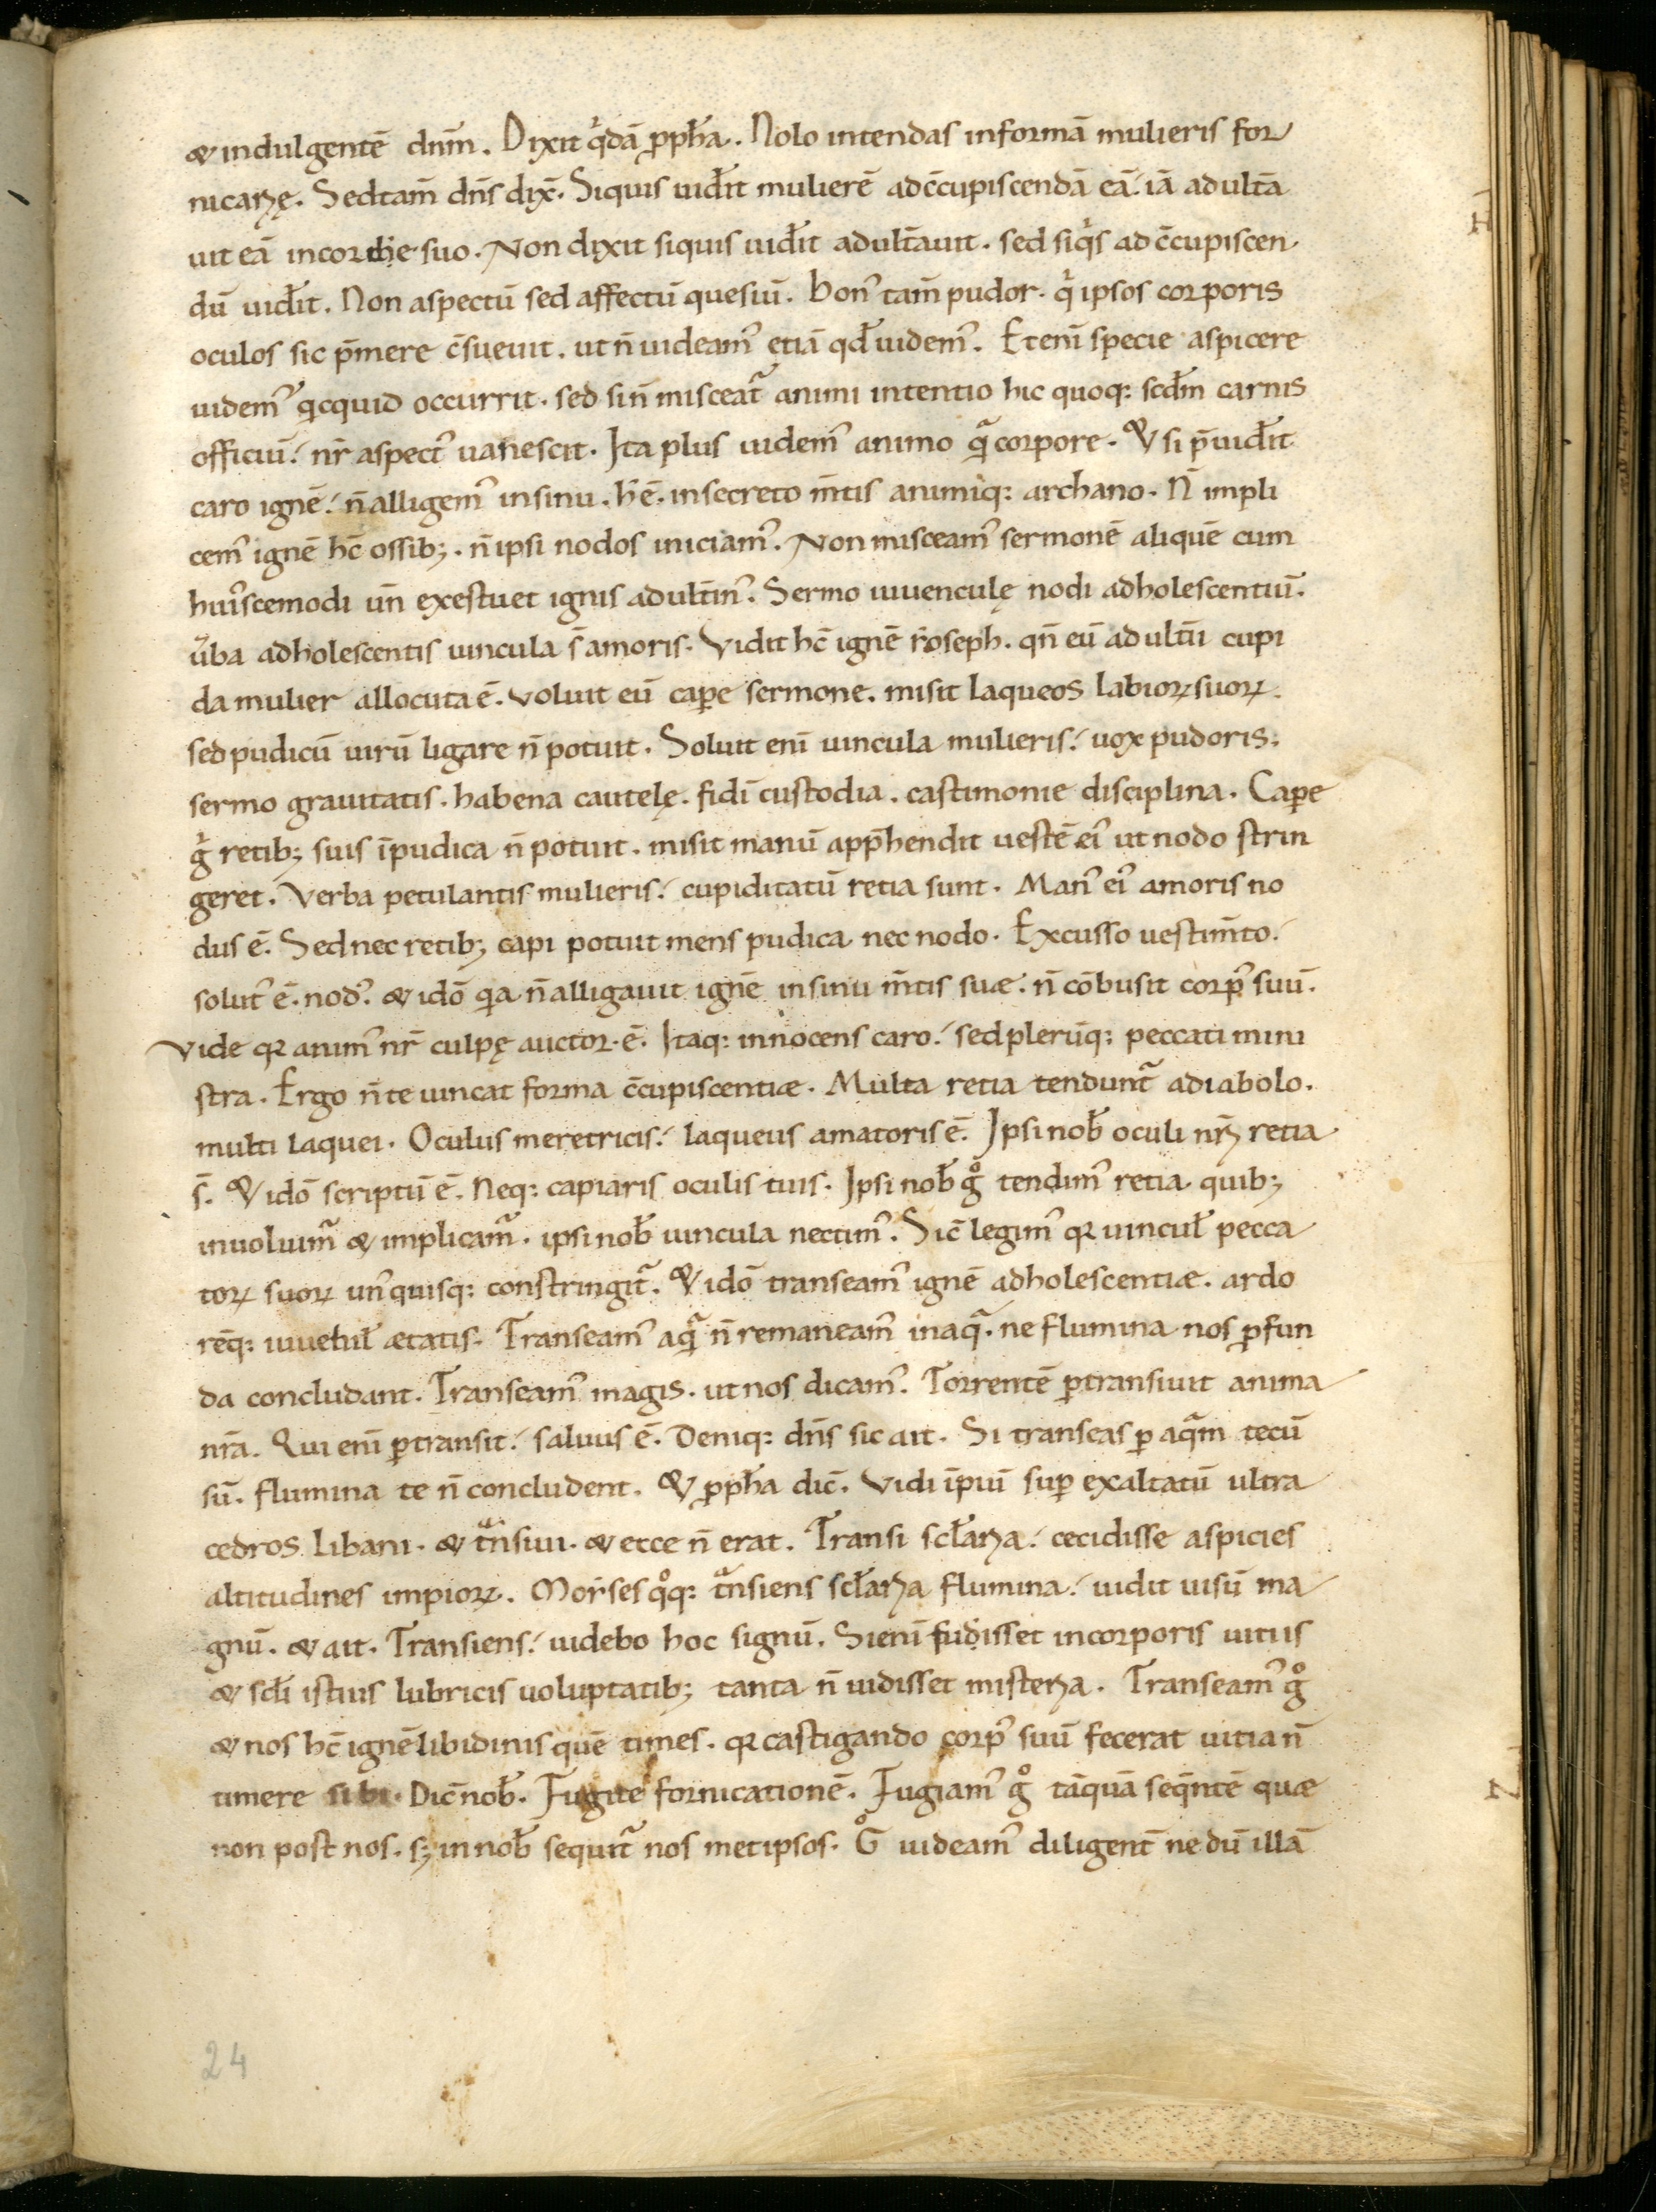 & indulgentē dnm̄. Dixit qͥdā ꝓph̄a. Nolo intendas informā mulieris for
nicarię. Sedtam̄ dn̄s dix̄. Siquis uid̄it mulierē adc̄cupiscendā eā. iā adultā
uit eā incordie suo. Non dixit siquis uid̄it adult̄auit. sed siqͥs ad c̄cupiscen
dū uid̄it. Non aspectū sed affectū quesiū. Bonꝰ tam̄ pudor. qͥ ipsos corporis
oculos sic p̄mere c̄sueuit. ut n̄ uideamꝰ etiā qd̄ uidemꝰ. Etenī specie aspicere
uidemꝰ qͥcquid occurrit. sed sin̄ misceat᷑ animi intentio hic quoq: scd̄m carnis
officiū. nr̄ aspectꝰ uanescit. Ita plus uidemꝰ animo qͣ corpore. & si p̄uid̄it
caro ignē. n̄ alligemꝰ insinu. h̄ ē. insecreto m̄tis animiq: archano. N̄ impli
cemꝰ ignē hc̄ ossibꝫ. n̄ ipsi nodos iniciamꝰ. Non misceamꝰ sermonē aliquē cum
huiꝰscemodi un̄ exestuet ignis adult̄inꝰ. Sermo iuuenculę nodi adholescentiū.
ūba adholescentis uincula s̄ amoris. Vidit hc̄ ignē Ioseph. qn̄ eū adult̄ii cupi
da mulier allocuta ē. voluit eū caꝑe sermone. misit laqueos labioꝝ suoꝝ.
sed pudicū uirū ligare n̄ potuit. Soluit enī uincula mulieris. uox pudoris.
sermo grauitatis. habena cautelę. fidī custodia. castimonie disciplina. Caꝑe
gͥ retibꝫ suis īpudica n̄ potuit. misit manū app̄hendit uestē eiꝰ ut nodo strin
geret. Verba petulantis mulieris. cupiditatū retia sunt. Manꝰ eiꝰ amoris no
dus ē. Sed nec retibꝫ capi potuit mens pudica nec nodo. Excusso uestim̄to.
solutꝰ ē. nodꝰ. & idō qͥa n̄ alligauit ignē insinu m̄tis suae. n̄ cōbusit corpꝰ suū.
Vide qꝛ animꝰ nr̄ culpę auctor ē. Itaq: innocens caro. sed plerūq: peccati mini
stra. Ergo n̄ te uincat forma c̄cupiscentiae. Multa retia tendunt᷑ adiabolo.
multi laquei. Oculus meretricis. laqueus amatoris ē. Ipsi nob̄ oculi nr̄i retia
s̄. & idō scriptū ē. Neq: capiaris oculis tuis. Ipsi nob̄ gͦ tendimꝰ retia quibꝫ
inuoluim᷑ & implicam᷑. ipsi nob̄ uincula nectimꝰ. Sic̄ legimꝰ qꝛ uincul̄ pecca
toꝝ suoꝝ unꝰquisq: constringit᷑. & idō transeamꝰ ignē adholescentiae. ardo
rēq: iuuetul̄ aetatis. Transeamꝰ aqͣ n̄ remaneamꝰ inaqͣ. ne flumina nos ꝓfun
da concludant. Transeamꝰ magis. ut nos dicamꝰ. Torrentē ꝑtransiuit anima
nr̄a. Qui enī ꝑtransit. saluus ē. Deniq: dn̄s sic ait. Si transeas ꝑ aqͣm tecū
sū. flumina te n̄ concludent. & ꝓph̄a dic̄. Vidi īpiū suꝑ exaltatū ultra
cedros Libani. & tͣnsiui. & ecce n̄ erat. Transi scl̄aria. cecidisse aspicies
altitudines impioꝝ. Moyses qͦq: tͣnsiens scl̄aria flumina. uidit uisū ma
gnū. & ait. Transiens. uidebo hoc signū. Sienī fudisset incorporis uitiis
& scl̄i istius lubricis uoluptatibꝫ tanta n̄ uidisset misteria. Transeamꝰ gͦ
& nos hc̄ ignē libidinis quē times. qꝛ castigando corpꝰ suū fecerat uitia n̄
timere sibi. Dic̄ nob̄. Fugite fornicationē. Fugiamꝰ gͦ tāquā seq̄ntē quae
non post nos. sꝫ in nob̄ sequit᷑ nos metipsos. Gͦ uideamꝰ diligent̄ ne dū illā
24